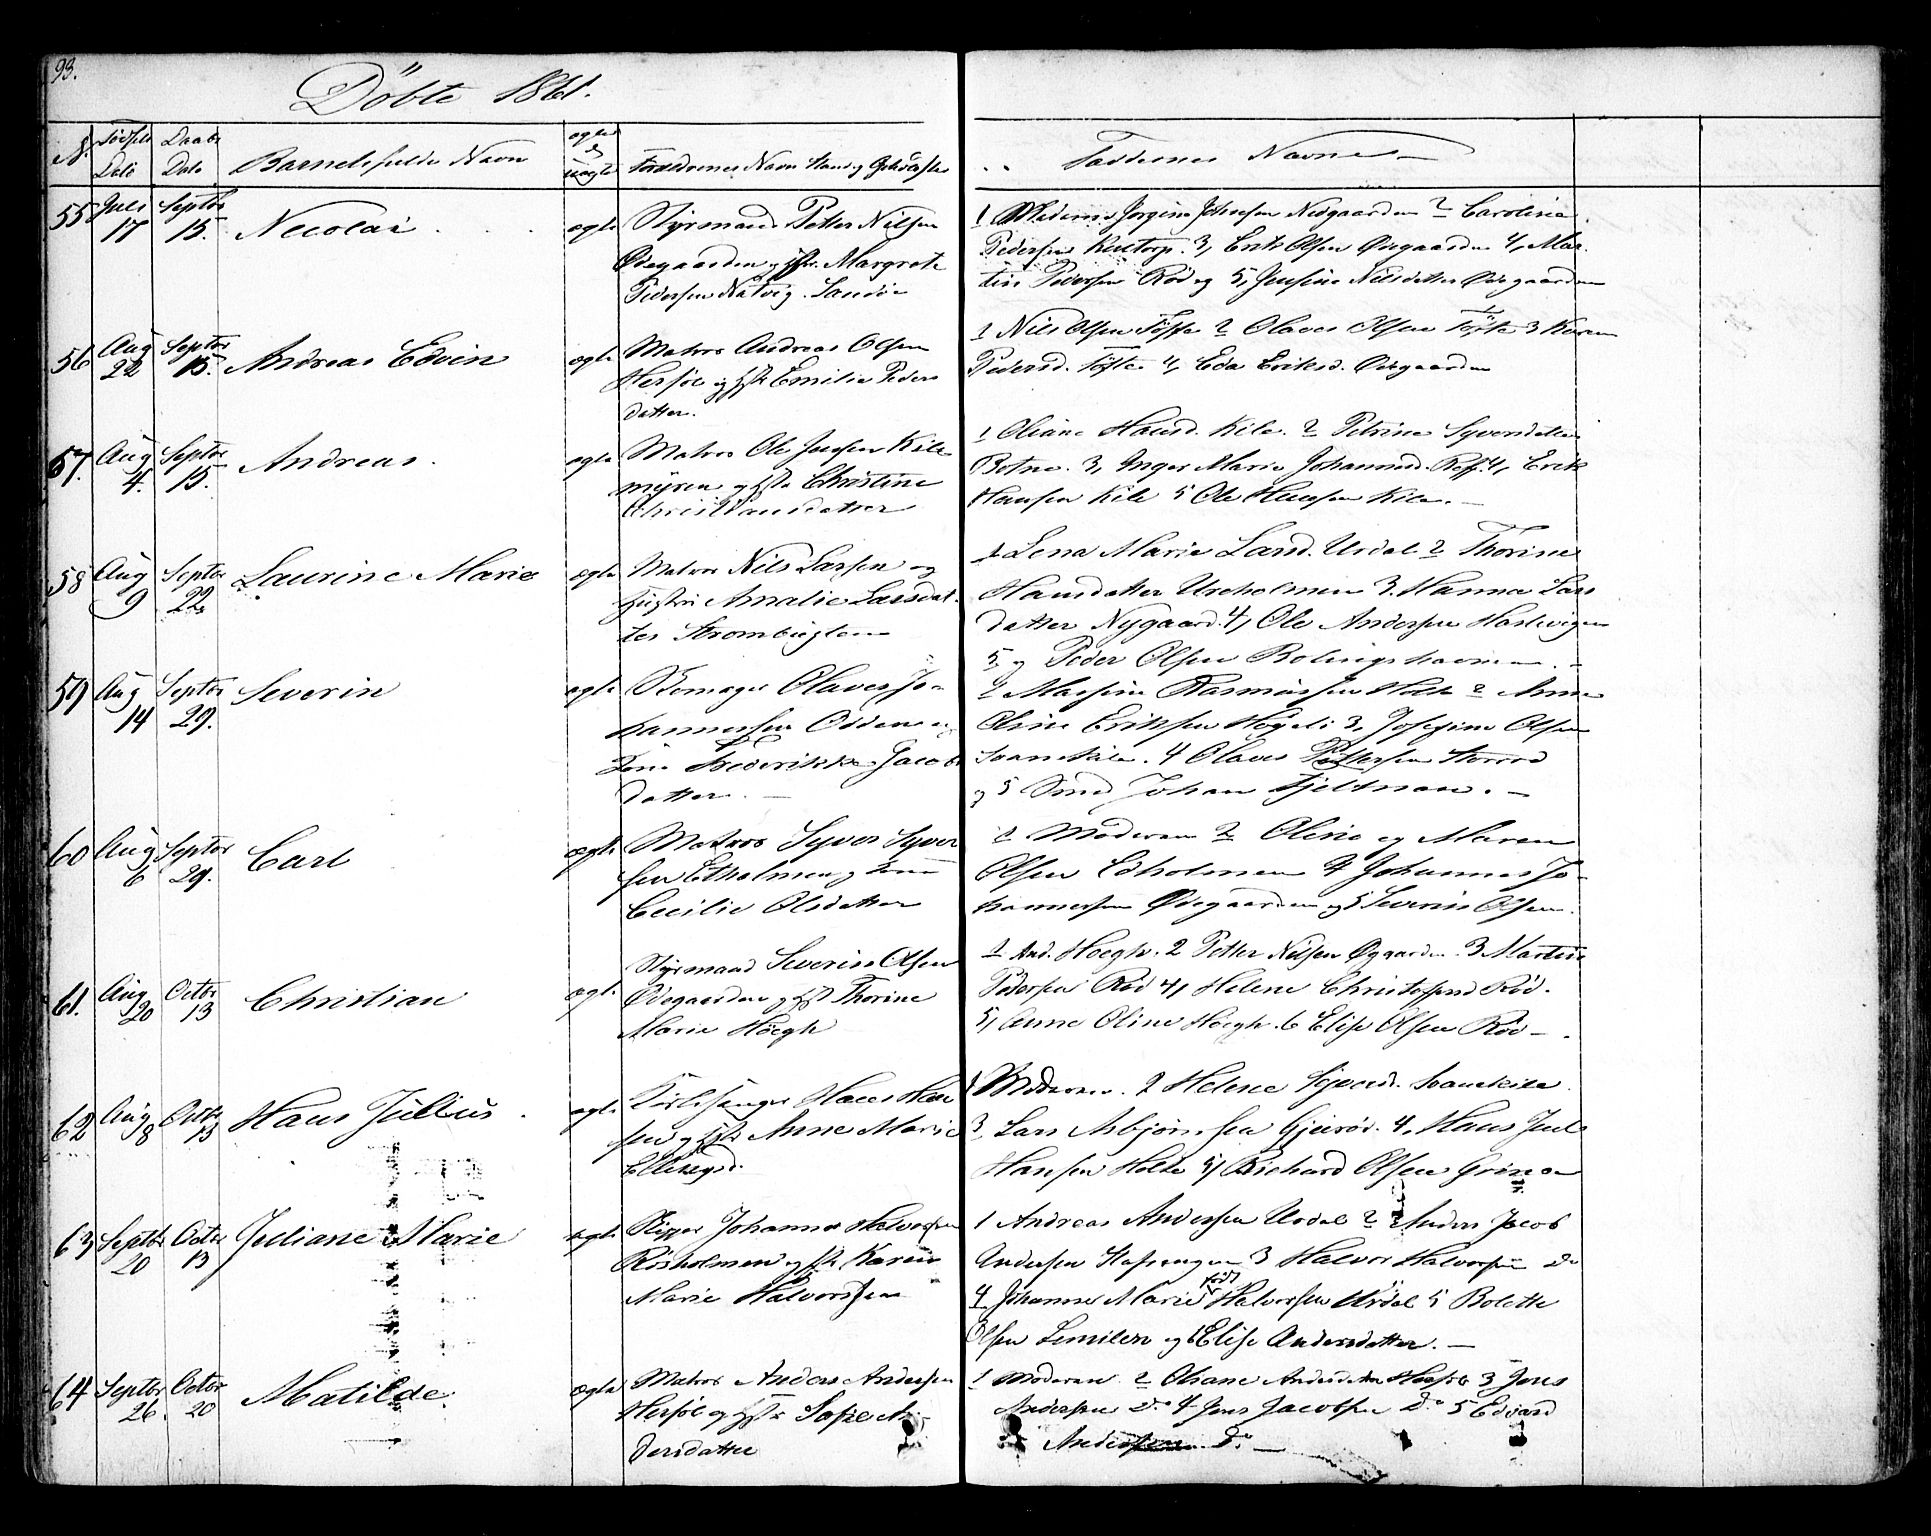 93.
Döbte 1861.
N. Födsels Dato Daabs Dato Barnets fulde Navn ægte & uægte Forældrenes Navn Stand og Opholdssted
Faddernes Navne
55 Juli 17 Septbr 15. Nicolai ægte Styrmand Petter Nilsen
Ødegaarden og Hst. Margrete
Pedersen Natvig. Sandöe
1 Madame Jörgine Johnsen Nedgaarden 2 Caroline
Pedersen 3, Erik Olsen Ødegaarden 4, Mar-
tin Pedersen Röd og 5, Jensine Nilsdatter Ødegaarden
56 Aug 22 Septbr 15. Andreas Edvin ægte Matros Andreas Olsen
Hersöe og Hst Emilie Peders
datter.
1 Nils Olsen Töfte 2 Olaves Olsen Töfte 3 Karen
Pedersd. Töfte 4, Eda Eriksd. Ødegaarden
57. Aug 4. Septbr 15. Andreas. ægte Matros Ole Jensen Kile
myren og Hst Christine
Christiansdatter
1 Oliane Hansd. Kile. 2 Petrine Syversdatter
Botne. 3, Inger Marie Johannesd. 4, Erik
Hansen Kile 5 Ole Hansen Kile. —
58 Aug 9 Septbr 22 Laurine Marie ægte Matros Nils Larsen og
Hustru Amalie Larsdat-
ter Strombugten
1 Lena Marie Larsd. Urdal 2 Thorine
Hansdatter Ureholmen 3. Hanna Lars
datter Nygaard. 4, Ole Andersen Hastvigen
5 og Peder Olsen Bolingshavnen. —
59 Aug 14 Septbr 29. Severin ægte Olaves Jo-
hannessen Odden og
Kone Frederikke Jacobs
datter. —
1 Rasmussen Holte 2 Anne
Oline Eriksen Högeli 3, Josefine Olsen
Svanekile. 4 Olaves Pettersen
og 5 Smed Johan Fjeldman. —
60 Aug 6 Septbr 29. Carl ægte Matros Syver Syver
sen Edholmen og Kone
Cecilie Olsdatter
1 Moderen 2 Oline og Maren
Olsen Edholmen 4 Johannes Jo-
hannessen Ødegaarden og 5 Severin Olsen.
61. Aug 20 Octbr 13 Christian ægte Styrmand Severin Olsen
Ødegaarden og Hst Thorine
Marie Höegh
1 And. Höegh. 2 Petter Nilsen Øgaarden. 3 Martin
Pedersen Röd 4, Helene Christophersd Röd.
5, Anne Oline Höegh. 6 Elise Olsen Röd —
62 Aug 8 Octbr 13 Hans Julius. ægte Kirkesanger Hans Han
sen og Hst Anne Marie
Ellingsd.
1 Moderen. 2 Helene Svanekile
3, Lars Asbjörnsen Gjeiröd. 4, Hans Juel
Hansen Holte 5, Richard Olsen
63 Septbr 20 Octbr 13 Juliane Marie ægte Skipper Johannes Halvorsen
Risholmen og Hst Karen
Marie Halvorsen
1 Andreas Andersen Urdal 2 Anders Jacob
Andersen 3 Halvor Halvorsen do
4 Johanne Marie Halvorsen Urdal 5 Bolette
Olsen og 6 Elise Andersdatter. —
64 Septbr 26. Octbr 20 Matilde. ægte Matros Anders Andersen
Hersöe og Hst Sofie An-
dersdatter
1 Moderen 2 Oliane Andersdatter Hersöe 3 Jens
Andersen do 4 Jens Jacobsen Do 5 Edvard
Andersen do —